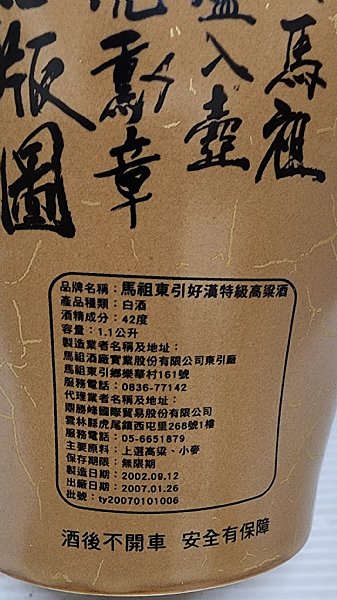 馬祖
盛入壺
虎勳章
版圖
品牌名稱：馬祖東引好漢特級高粱酒
產品種類：白酒
酒精成分：42度
容量：1.1公升
製造業者名稱及地址：
馬祖酒廠實業股份有限公司東引廠
馬祖東引鄉樂華村161號
服務電話：0836-77142
代理業者名稱及地址：
鼎勝峰國際貿易股份有限公司
雲林縣虎尾鎮西屯里268號1樓
服務電話：05-6651879
主要原料：上選高粱、小麥
保存期限：無限期
製造日期：2002.09.12
出廠日期：2007.01.26
批號：ty20070101006
酒後不開車 安全有保障